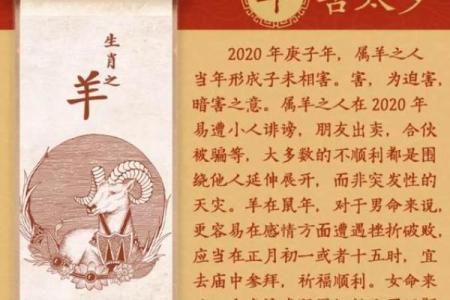 生肖之
羊
害太岁
2020年庚子年，属羊之人
当年形成子未相害。害，为迫害，
暗害之意。属羊之人在2020年
易遭小人诽谤，朋友出卖，合伙
被骗等，大多数的不顺利都是围
绕他人延伸展开，而非突发性的
天灾。羊在鼠年，对于男命来说，
更容易在感情方面遭遇挫折破败，
应当在正月初一或者十五时，宜
去庙中参拜，祈福顺利。女命来